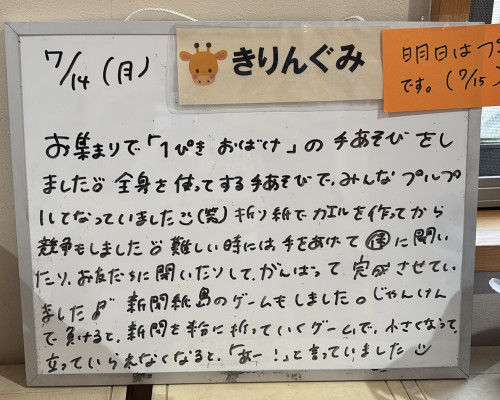 7/14 (月)
きりんぐみ
明日はプ
です。(7/15
お集まりで「1ぴき おばけ」の 手あそび をし
ました♪ 全身を使ってする手あそびで、みんな プルプ
ルしてなっていました☺(笑) 折り紙で カエルを作ってから
競争もしました♪ 難しい時には、手をあげて 保 に聞い
たり、お友だちに聞いたりして、がんばって 完成させてい
ました♪ 新聞紙島のゲームもしました。じゃんけん
で負けると、新聞を 折っていくゲームで、小さくなって
立っていられなくなると、「あー!」と言っていました☺